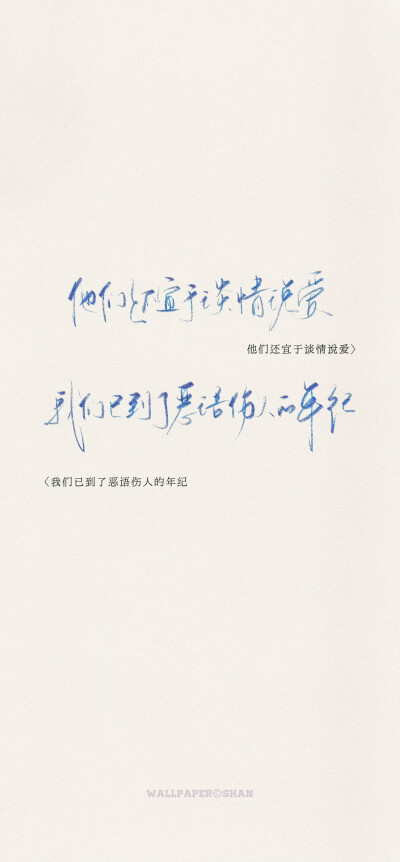 他们还宜于谈情说爱
他们还宜于谈情說爱〉
我们已到了恶语伤人的年纪
〈我们已到了恶语伤人的年纪
WALLPAPER©SHAN